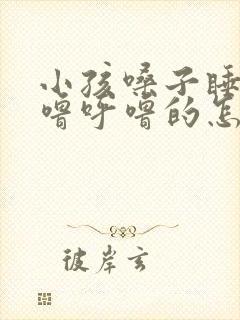 小孩嗓子睡
噜呼噜的怎
彼岸玄